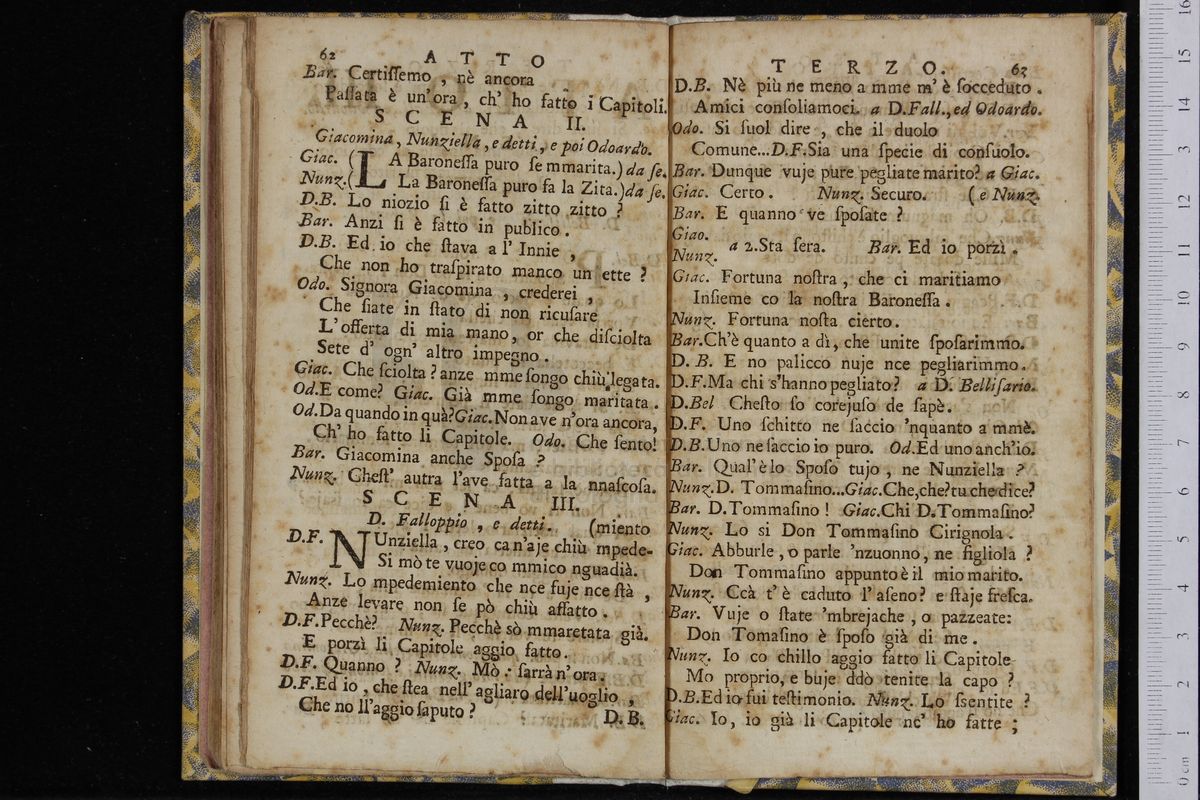 62 A T T O
Bar. Certiſſemo , nè ancora
Paſſata è un'ora , ch' ho fatto i Capitoli.
S C E N A II.
Giacomina , Nunziella , e detti , e poi Odoardo.
Giac. ( LA Baroneſſa puro ſe mmarita.) da ſe.
Nunz.( La Baroneſſa puro fa la Zita.) da ſe.
D.B. Lo niozio ſi è fatto zitto zitto ?
Bar. Anzi ſi è fatto in publico .
D.B. Ed io che ſtava a l' Innie ,
Che non ho traſpirato manco un ette ?
Odo. Signora Giacomina , crederei ,
Che ſiate in ſtato di non ricuſare
L'offerta di mia mano, or che diſciolta
Sete d' ogn' altro impegno .
Giac. Che ſciolta ? anze mme ſongo chiù legata.
Od.E come? Giac. Già mme ſongo maritata .
Od.Da quando in quà?Giac.Non ave n'ora ancora,
Ch' ho fatto li Capitole. Odo. Che ſento!
Bar. Giacomina anche Spoſa ?
Nunz. Cheſt' autra l'ave fatta a la nnaſcoſa.
S C E N A III.
D. Falloppio , e detti. (miento
D.F. NUnziella , creo ca n'aje chiù mpede-
Si mò te vuoje co mmico nguadià.
Nunz. Lo mpedemiento che nce fuje nce ſtà ,
Anze levare non ſe pò chiù affatto .
D.F.Pecchè? Nunz. Pecchè sò mmaretata già.
E porzì li Capitole aggio fatto.
D.F. Quanno ? Nunz. Mò : ſarrà n' ora .
D.F.Ed io , che ſtea nell' agliaro dell'uoglio ,
Che no ll'aggio ſaputo ? D. B.
T E R Z O. 63
D.B. Nè più ne meno a mme m' è ſocceduto .
Amici conſoliamoci. a D.Fall., ed Odoardo.
Odo. Si ſuol dire , che il duolo
Comune...D.F.Sia una ſpecie di conſuolo.
Bar. Dunque vuje pure pegliate marito? a Giac.
Giac. Certo . Nunz. Securo. ( e Nunz.
Bar. E quanno ve ſpoſate ?
Giac.
a 2.Sta ſera. Bar. Ed io porzì .
Nunz.
Giac. Fortuna noſtra , che ci maritiamo
Inſieme co la noſtra Baroneſſa .
Nunz. Fortuna noſta cierto.
Bar.Ch'è quanto a dì, che unite ſpoſarimmo.
D. B. E no palicco nuje nce pegliarimmo.
D.F.Ma chi s'hanno pegliato? a D. Belliſario.
D.Bel Cheſto ſo corejuſo de ſapè.
D.F. Uno ſchitto ne ſaccio 'nquanto a mmè.
D.B.Uno ne ſaccio io puro. Od.Ed uno anch'io.
Bar. Qual'è lo Spoſo tujo , ne Nunziella ?
Nunz.D. Tommaſino...Giac.Che,che?tu che dice?
Bar. D.Tommaſino ! Giac.Chi D.Tommaſino?
Nunz. Lo si Don Tommaſino Cirignola .
Giac. Abburle , o parle 'nzuonno, ne figliola ?
Don Tommaſino appunto è il mio marito.
Nunz. Ccà t' è caduto l' aſeno? e ſtaje freſca.
Bar. Vuje o ſtate 'mbrejache , o pazzeate:
Don Tomaſino è ſpoſo già di me .
Nunz. Io co chillo aggio fatto li Capitole
Mo proprio, e buje ddò tenite la capo ?
D.B.Ed io fui teſtimonio. Nunz. Lo ſsentite ?
Giac. Io, io già li Capitole ne' ho fatte ;